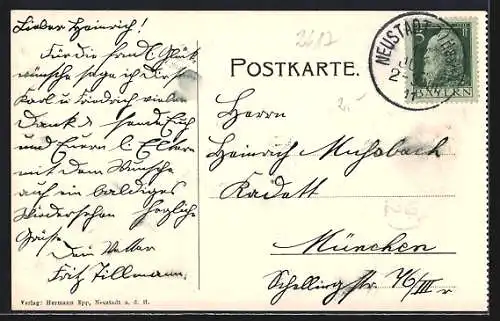 Lieber Heinrich!
Für die freundl. Glück-
wünsche sage ich dir sowie
Karl u. Friedrich vielen
Dank u. sende Euch
und Euern l. Eltern
mit dem Wunsche
auf ein baldiges
Wiedersehen herzliche
Grüße
Dein Vetter
Fritz Tillmann.
Verlag: Hermann Epp, Neustadt a. d. H.
2617
POSTKARTE.
NEUSTADT
BAYERN
Herrn
Heinrich Mühsbach
Kadett
München
Schellingstr. 76/III r